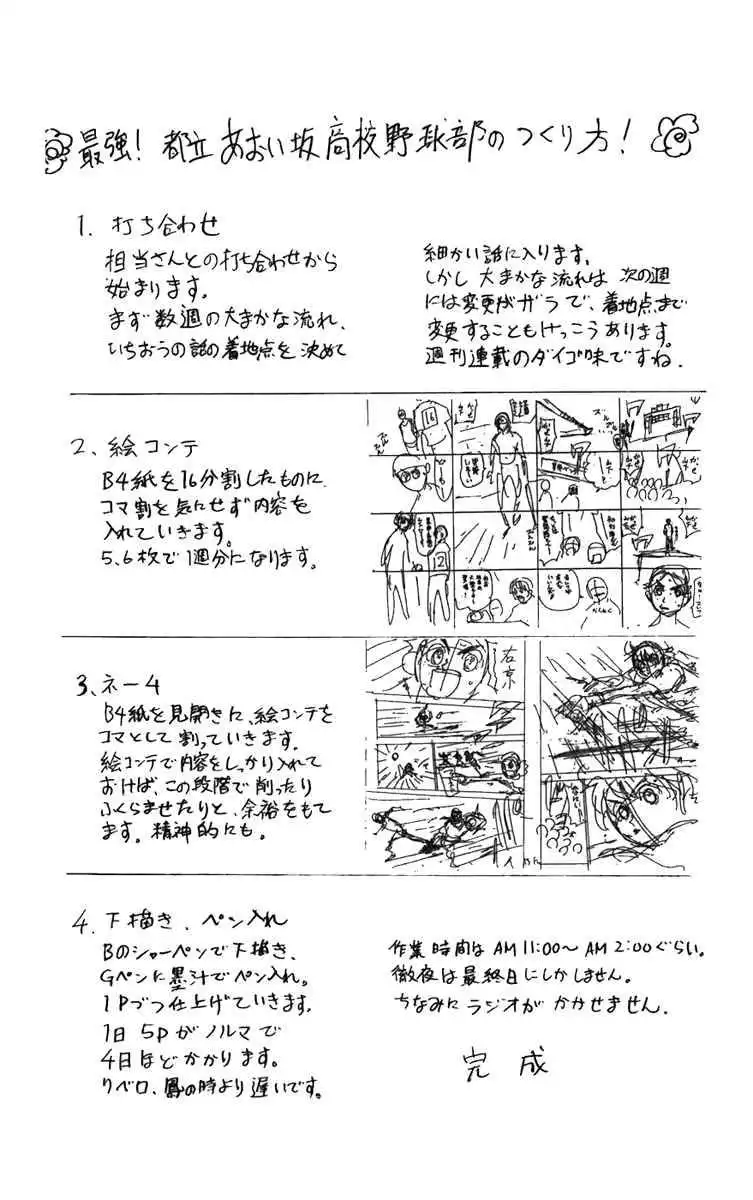 最強！都立あおい坂高校野球部のつくり方！
1. 打ち合わせ
担当さんとの打ち合わせから
始まります。
まず数週の大まかな流れ、
いちおうの話の着地点を決めて
細かい話に入ります。
しかし大まかな流れは次の週
には変更がザラで、着地点まで
変更することもけっこうあります。
週刊連載のダイゴ味ですね.
2、絵コンテ
B4紙を16分割したものに、
コマ割を気にせず内容を
入れていきます。
5、6枚で1週分になります。
16
12
3、ネーム
B4紙を見開きに、絵コンテを
コマとして割っていきます。
絵コンテで内容をしっかり入れて
おけば、この段階で削ったり
ふくらませたりと、余裕をもて
ます。精神的にも。
右京
4. 下描き、ペン入れ
Bのシャーペンで下描き、
Gペンに墨汁でペン入れ。
1Pづつ仕上げていきます。
1日5Pがノルマで
4日ほどかかります。
リベロ、鳳の時より遅いです。
作業時間はAM11:00〜AM2:00ぐらい。
徹夜は最終日にしかしません。
ちなみにラジオがかかせません.
完成